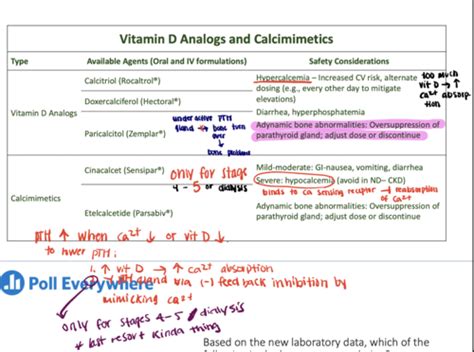 Vitamin D Analogs and Calcimimetics
Type Available Agents (Oral and IV formulations) Safety Considerations
Vitamin D Analogs
Calcitriol (Rocaltrol®)
Doxercalciferol (Hectoral®)
Paricalcitol (Zemplar®)
Hypercalcemia – Increased CV risk, alternate
dosing (e.g., every other day to mitigate
elevations)
Diarrhea, hyperphosphatemia
Adynamic bone abnormalities: Oversuppression of
parathyroid gland; adjust dose or discontinue
too much
vit D → ↑
Ca2+ absorp
tion
under active PTH
gland → bone turn
over
bone problems
Calcimimetics
Cinacalcet (Sensipar®)
Etelcalcetide (Parsabiv®)
only for stage
4 - 5 or dialysis
Mild-moderate: GI-nausea, vomiting, diarrhea
Severe: hypocalcemia (avoid in ND– CKD)
binds to ca sensing receptor → reabsorption
of Ca2+
Adynamic bone abnormalities: Oversuppression of
parathyroid gland; adjust dose or discontinue
PTH ↑ when Ca2+ ↓ or vit D ↓
to lower PTH:
1. ↑ vit D → ↑ Ca2+ absorption
PTH gland via (-) feed back inhibition by
mimicking Ca2+
Poll Everywhere
only for stages 4-5 / dialysis
* last resort kinda thing
Based on the new laboratory data, which of the